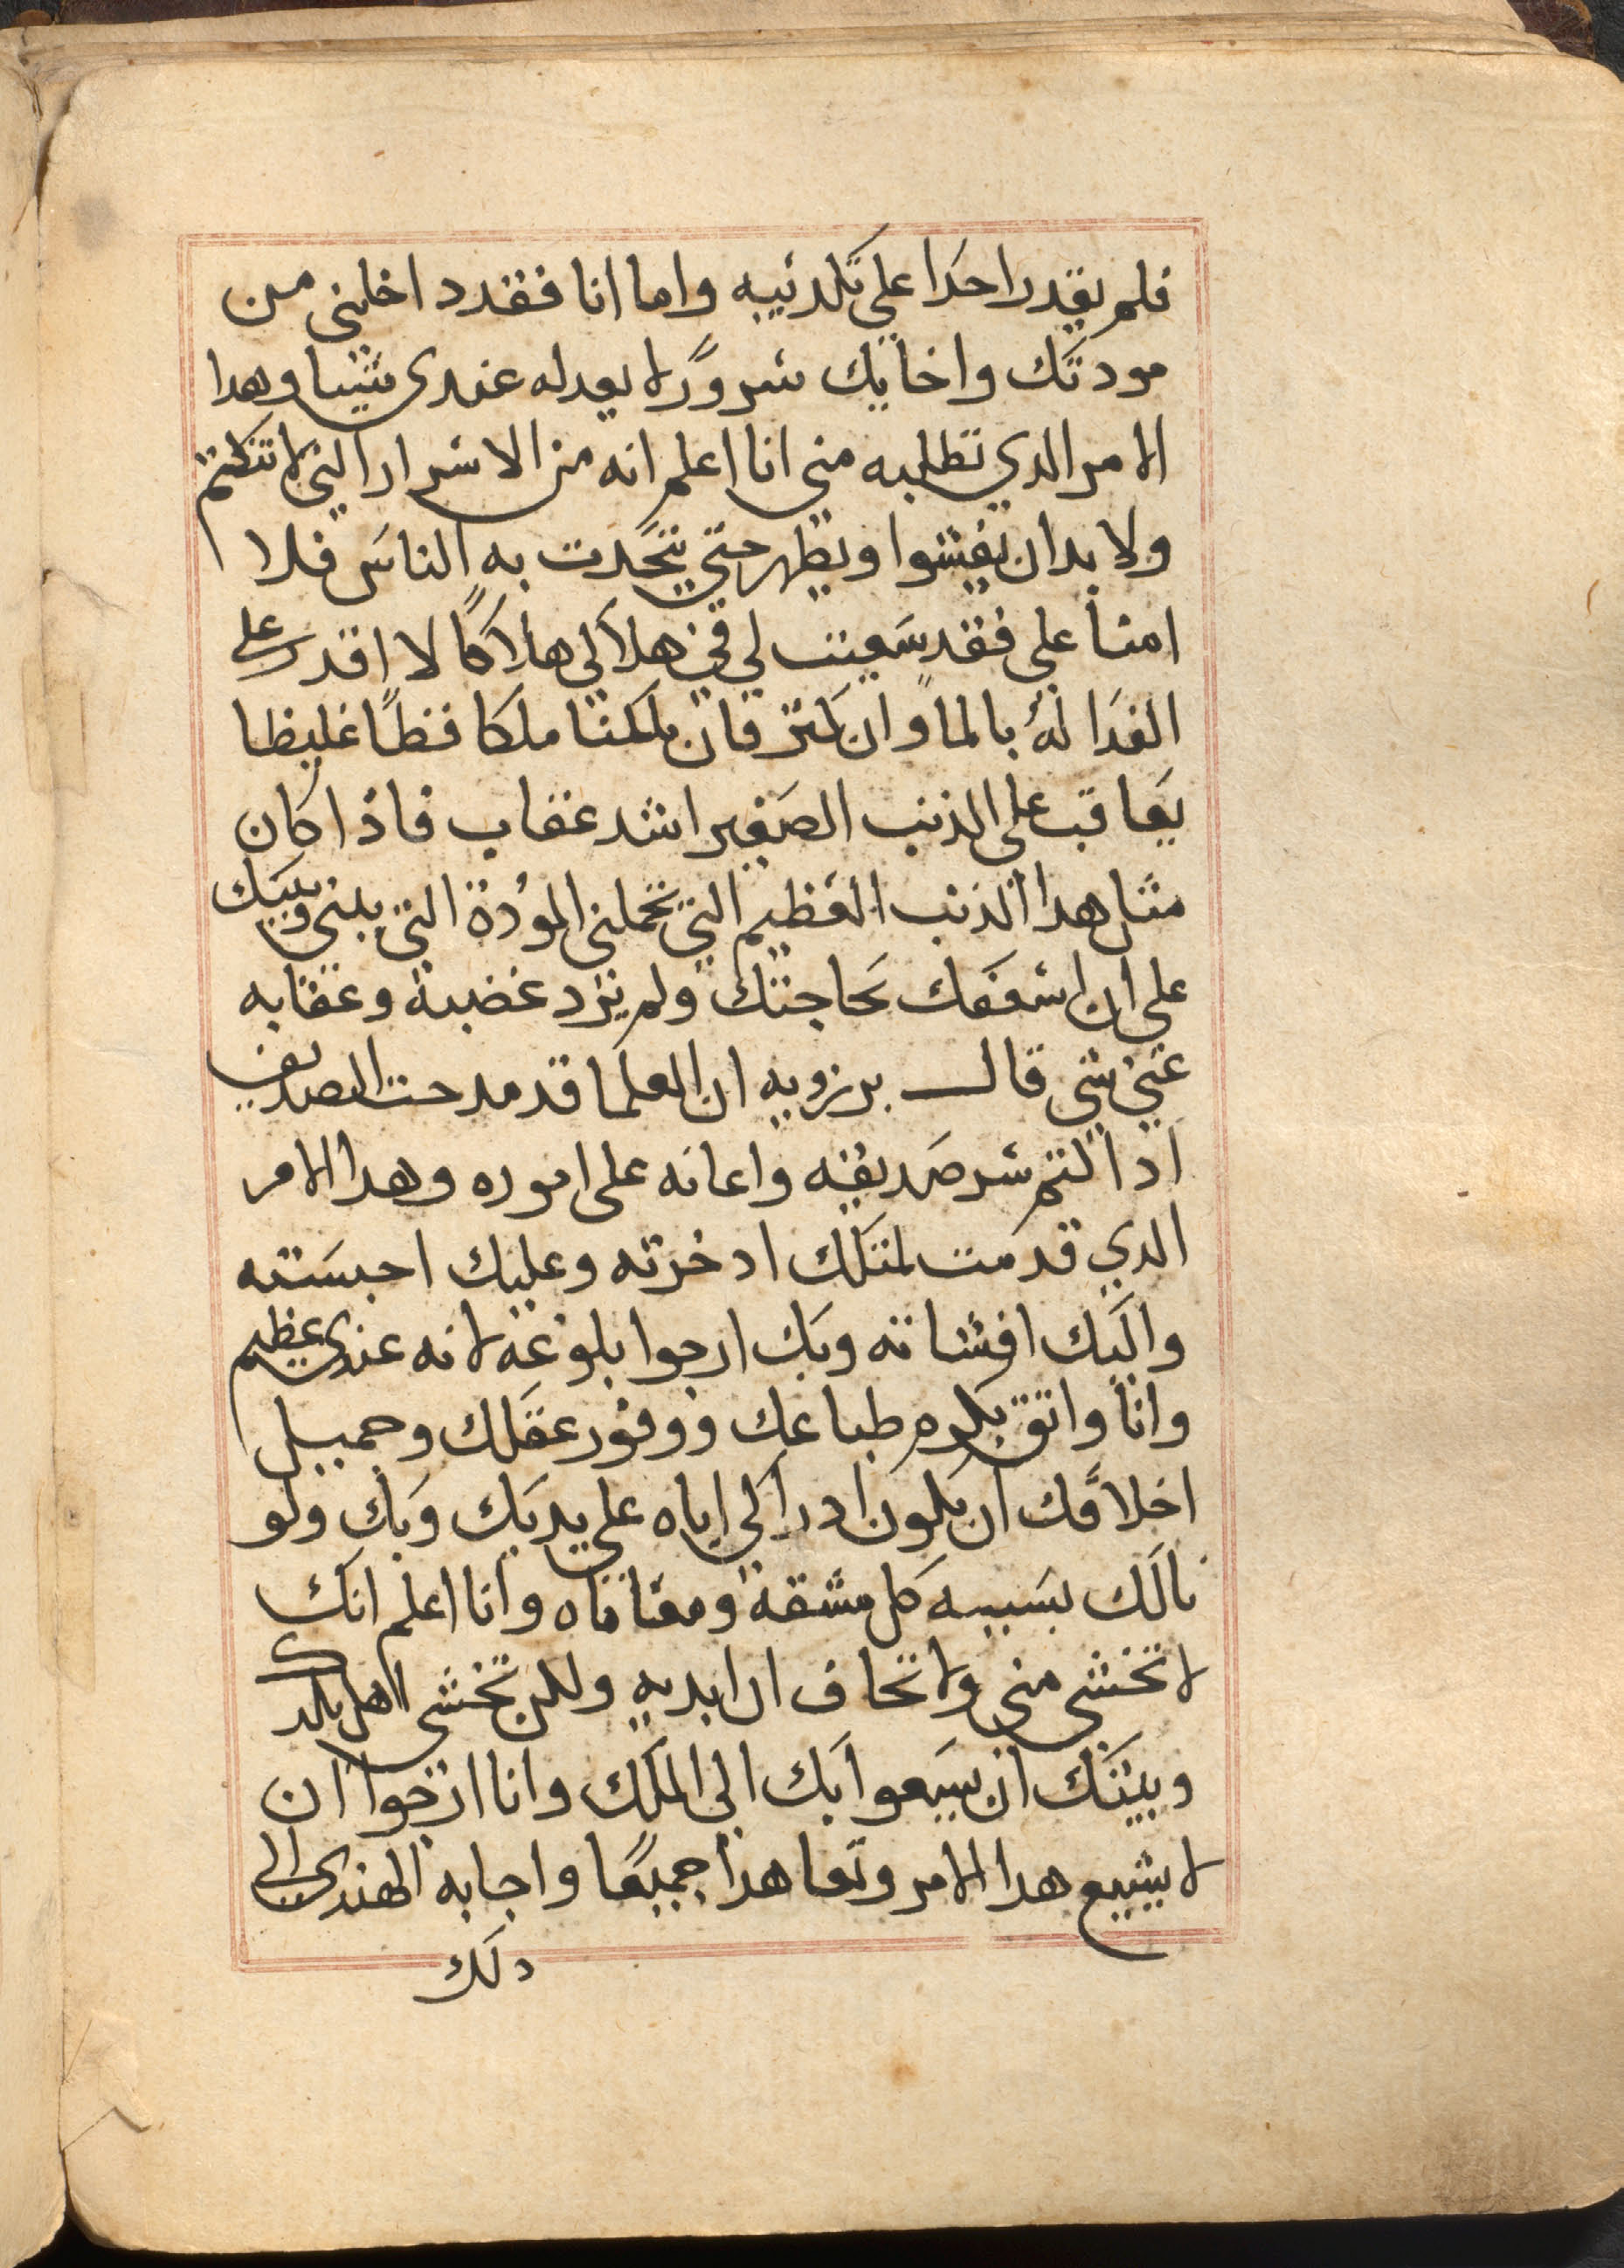 فلم يقدر احدا علي تكدنيبه واما انا فقدد اخلني من
مودتك واخايك سرورًا لا يعدله عندى شيا وهدا
الامر الدي تطلبه مني انا اعلم انه من الاسرار التي لا تنكتم
ولا بدان يفشوا ويظهر حتي يتحدت به الناس فلا
امنا علي فقد سعيت لي في هلاكي هلاكًا لا اقدر علي
الفدا لهُ بالمال وان كتر فان ملكنا ملكا فظًا غليظا
يعاقب علي الذنب الصغير اشد عقاب فاذا كان
متل هدا الذنب العظيم التي تحملني المودة التي بيني وبينك
على ان اسعفك بحاجتك ولم يرد غضبه وعقابه
عني شي قال برزويه ان العلما قد مدحت الصديق
ادا اكتم سر صديقه واعانه على اموره وهدا الامر
الدي قدمت لمتلك ادخرته وعليك احبسته
واليك افشاته وبك ارجوا بلوغه لانه عندى عظيم
وانا واتق بكرم طباعك ووفور عقلك وجميل
اخلاقك ان يكون ادراكي اياه علي يديك وبك ولو
نالك بسببه كل مشقة ومعاناه وانا اعلم انك
لا تخشى مني ولا تخاف ان ابديه ولكن تخشى اهل بلدك
وبيتك ان يسعوا بك الي الملك وانا ارجوا ان
لا يشيع هدا الامر وتعاهدا جميعًا واجابه الهندى الى
دلك